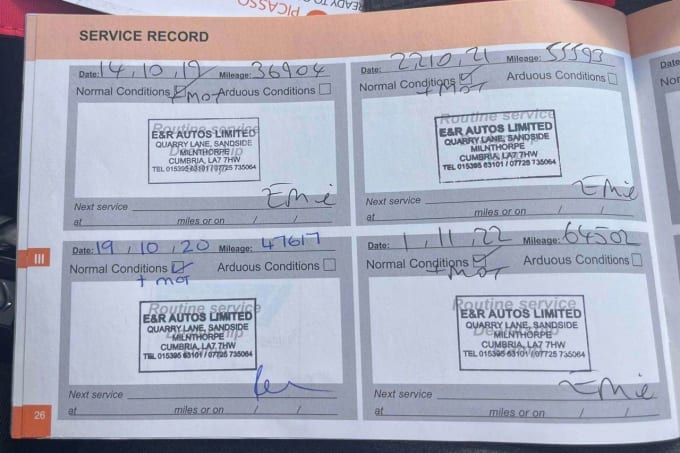 PICASSO
READY TO
SERVICE RECORD
Date: 14, 10, 19 Mileage: 36904
Normal Conditions Arduous Conditions
+ MOT
Routine service
E&R AUTOS LIMITED
QUARRY LANE, SANDSIDE
MILNTHORPE
CUMBRIA, LA7 7HW
TEL 015395 63101 / 07725 735064
Next service
at miles or on / /
Date: 22 10, 21 Mileage: 55593
Normal Conditions Arduous Conditions
+ MOT
Routine service
E&R AUTOS LIMITED
QUARRY LANE, SANDSIDE
MILNTHORPE
CUMBRIA, LA7 7HW
TEL 015395 63101 / 07725 735064
Next service
at miles or on / /
III
Date: 19, 10, 20 Mileage: 47617
Normal Conditions Arduous Conditions
+ MOT
Routine service
E&R AUTOS LIMITED
QUARRY LANE, SANDSIDE
MILNTHORPE
CUMBRIA, LA7 7HW
TEL 015395 63101 / 07725 735064
Next service
at miles or on / /
Date: 1, 11, 22 Mileage: 64502
Normal Conditions Arduous Conditions
+ MOT
Routine service
E&R AUTOS LIMITED
QUARRY LANE, SANDSIDE
MILNTHORPE
CUMBRIA, LA7 7HW
TEL 015395 63101 / 07725 735064
Next service
at miles or on / /
26
Date
Nor